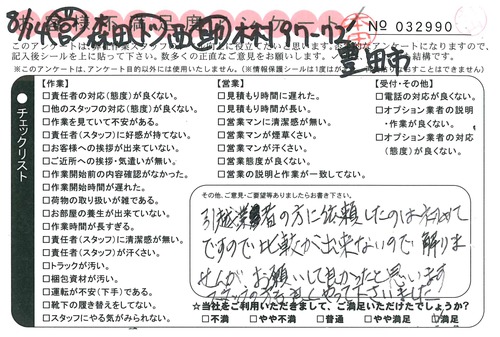 8/14
No 032990
豊田市
このアンケートは
記入後シールを上に貼って下さい。数多くの正直なご意見をお願いします。
(※このアンケートは、アンケート目的以外には使用いたしません。)
チェックリスト
【作業】
□責任者の対応(態度)が良くない。
□他のスタッフの対応(態度)が良くない。
□作業を見ていて不安がある。
□責任者(スタッフ)に好感が持てない。
□お客様への挨拶が出来ていない。
□ご近所への挨拶・気遣いが無い。
□作業開始前の内容確認がなかった。
□作業開始時間が遅れた。
□荷物の取り扱いが雑である。
□お部屋の養生が出来ていない。
□作業時間が長すぎる。
□責任者(スタッフ)に清潔感が無い。
□責任者(スタッフ)が汗くさい。
□トラックが汚い。
□梱包資材が汚い。
□運転が不安(下手)である。
□靴下の履き替えをしてない。
□スタッフにやる気がみられない。
【営業】
□見積もり時間に遅れた。
□見積もり時間が長い。
□営業マンに清潔感が無い。
□営業マンが煙草くさい。
□営業マンが汗くさい。
□営業態度が良くない。
□営業の説明と作業が一致してない。
【受付・その他】
□電話の対応が良くない。
□オプション業者の説明
・作業が良くない。
□オプション業者の対応
(態度)が良くない。
その他、ご意見・ご要望等ありましたらお書き下さい。
引越業者の方に依頼したのは初めて
ですので比較が出来ないので解りま
せんが お願いして良かったと思います
☆当社をご利用いただきまして、ご満足いただけたでしょうか?
□不満 □やや不満 □普通 □やや満足 □満足